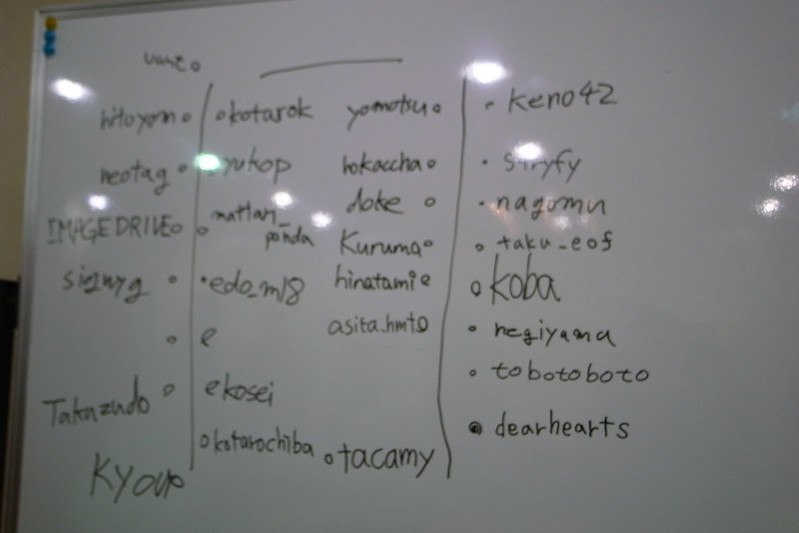 hitoyom
neotag
IMAGEDRIVE
Takazudo
kyoup
kotarok
yukop
matlan_
panda
edo_m18
kosei
kotarochiba
yomotsu
hokaccha
doke
Kuruma
hinatami
asita.hmt
tacamy
keno42
stryfy
nagomu
taku_eof
koba
negiyama
tobotoboto
dearhearts